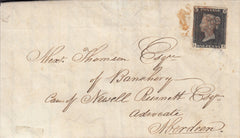 Alexr. Thomson Esqr.
of Banchory
Care of Newell Burnett Esqr.
Advocate
Aberdeen